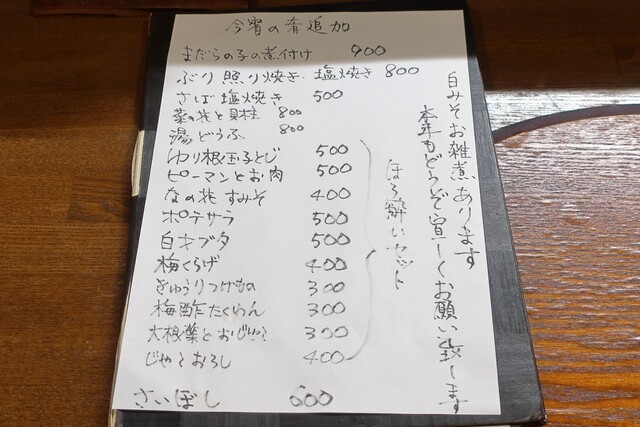 今宵の肴追加
まだらの子の煮付け 900
ぶり 照り焼き・塩焼き 800
さば 塩焼き 500
菜の花と貝柱 800
湯どうふ 800
ゆり根玉子とじ 500
ピーマンとお肉 500
なの花 すみそ 400
ポテサラ 500
白才ブタ 500
梅くらげ 400
きゅうりつけもの 300
梅酢たくわん 300
大根葉とおじゃこ 300
じゃこおろし 400
さいぼし 600
ほろ酔いセット
白みそお雑煮あります
本年もどうぞ宜しくお願い致します